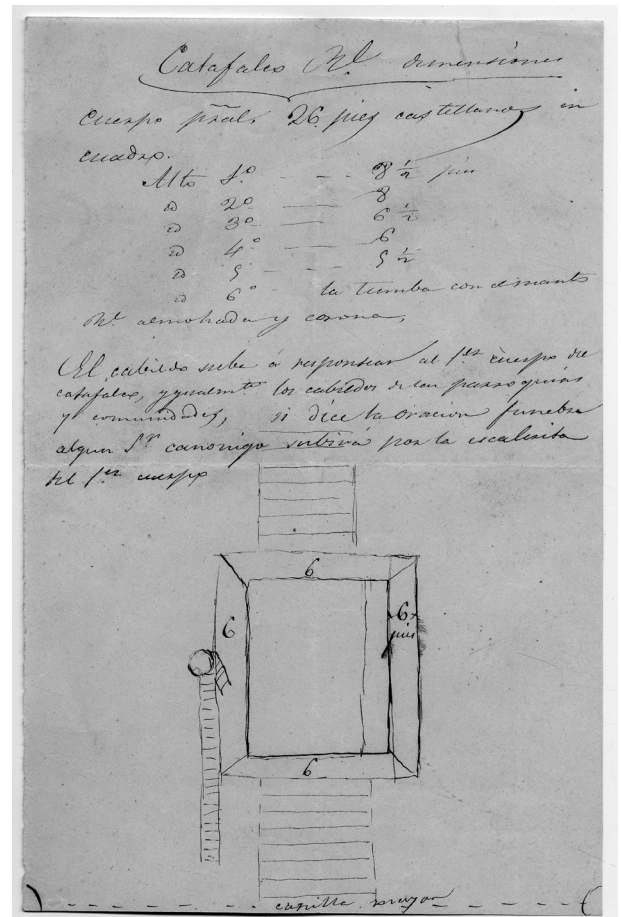 Catafalco Rl. dimensiones
cuerpo prãl. 26 pies castellanos en
cuadro.
Alto 1.º - - 8 ½ pies
id 2º — 8
id 3º — 6 ½
id 4.º — 6
id 5 - - 5 ½
id 6º la tumba con el manto
Rl. almohada y corona,
El cabildo sube á responsear al 1er cuerpo del
catafalco, y gualmte los cabildos de las parroquias
y comunidades, si dice la oracion funebre
algun Sr. canonigo subirá por la escalerita
del 1er cuerpo
6
6
6
pies
6
capilla mayor